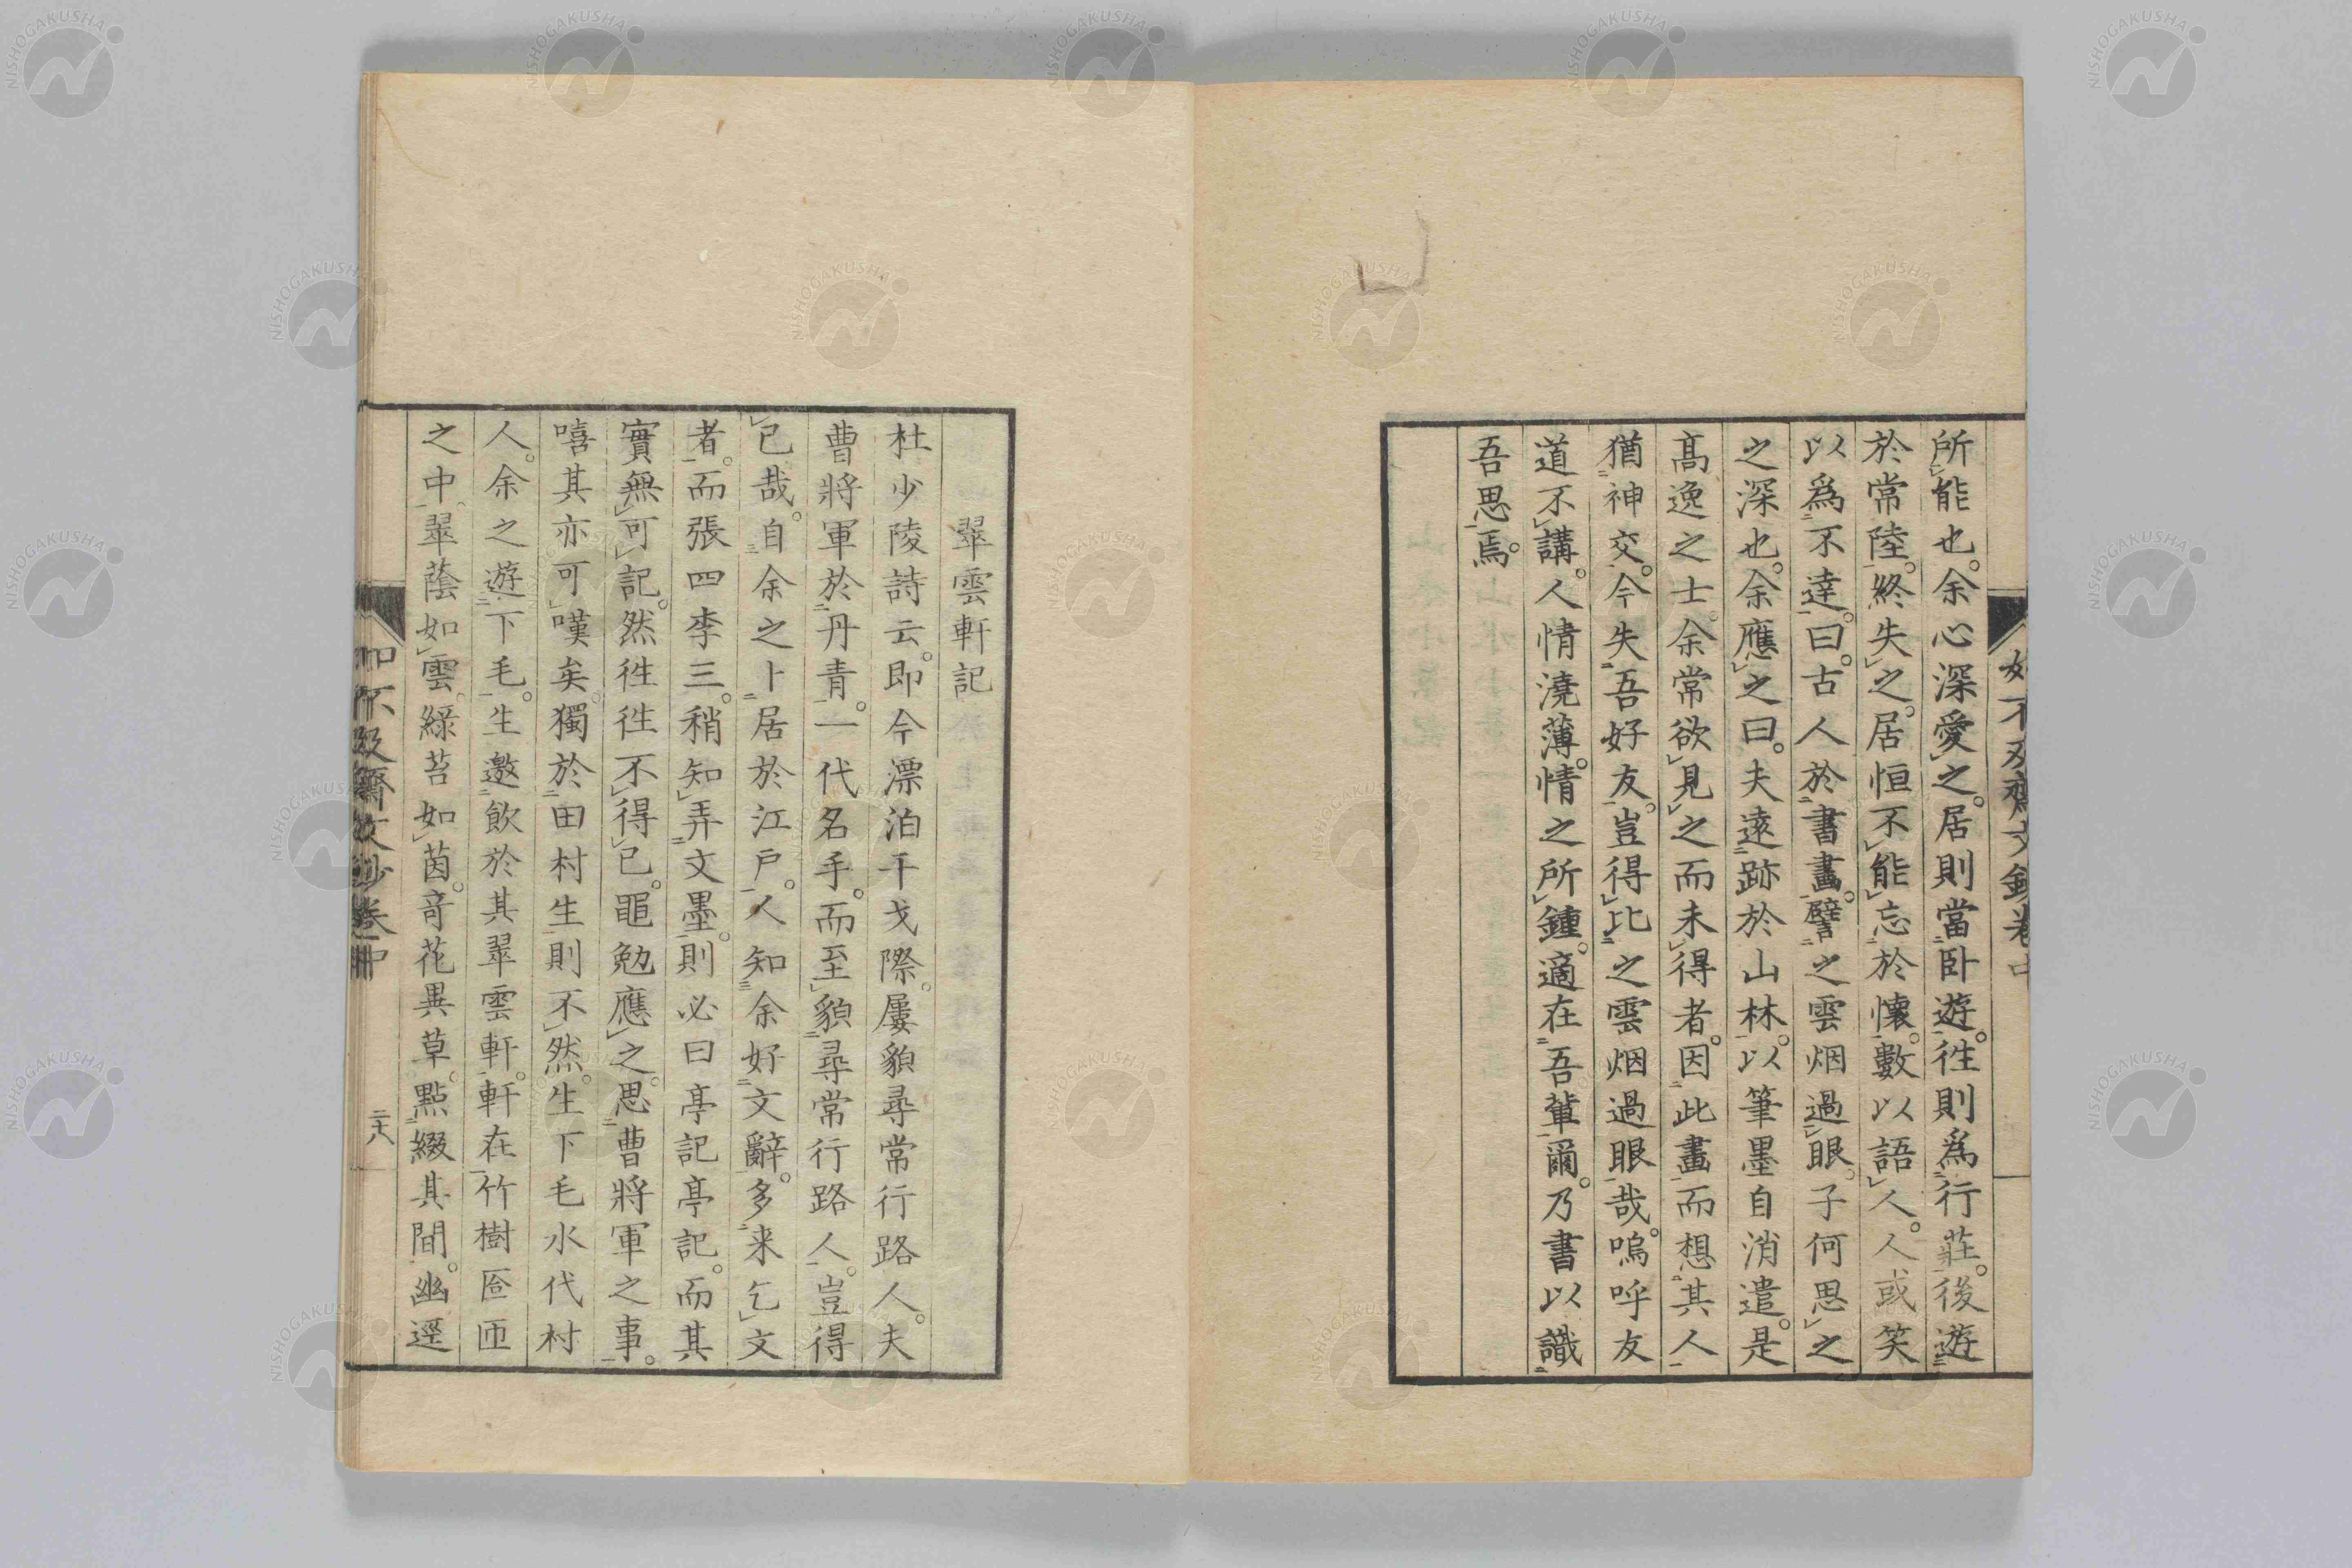 所能也。余心深愛之。居則當卧遊。往則爲行莊。後遊
於常陸。終失之。居恒不能忘於懷。數以語人。人或笑
以爲不達。曰。古人於書畫。譬之雲烟過眼。子何思之
之深也。余應之曰。夫遠跡於山林。以筆墨自消遣。是
高逸之士。余常欲見之而未得者。因此畫而想其人
猶神交。今失吾好友。豈得比之雲烟過眼哉。嗚呼友
道不講。人情澆薄。情之所鍾。適在吾輩爾。乃書以識
吾思焉。
翠雲軒記
杜少陵詩云。即今漂泊干戈際。屢貌尋常行路人。夫
曹將軍於丹青。一代名手。而至貌尋常行路人。豈得
已哉。自余之卜居於江戶。人知余好文辭。多来乞文
者。而張四李三。稍知弄文墨。則必曰亭記亭記。而其
實無可記。然往往不得已。黽勉應之。思曹將軍之事。
嘻其亦可嘆矣。獨於田村生則不然。生下毛水代村
人。余之遊下毛。生邀飲於其翠雲軒。軒在竹樹匼匝
之中。翠蔭如雲。綠苔如茵。奇花異草。點綴其間。幽逕
如不及齋文鈔卷中
二十八
NISHOGAKUSHA